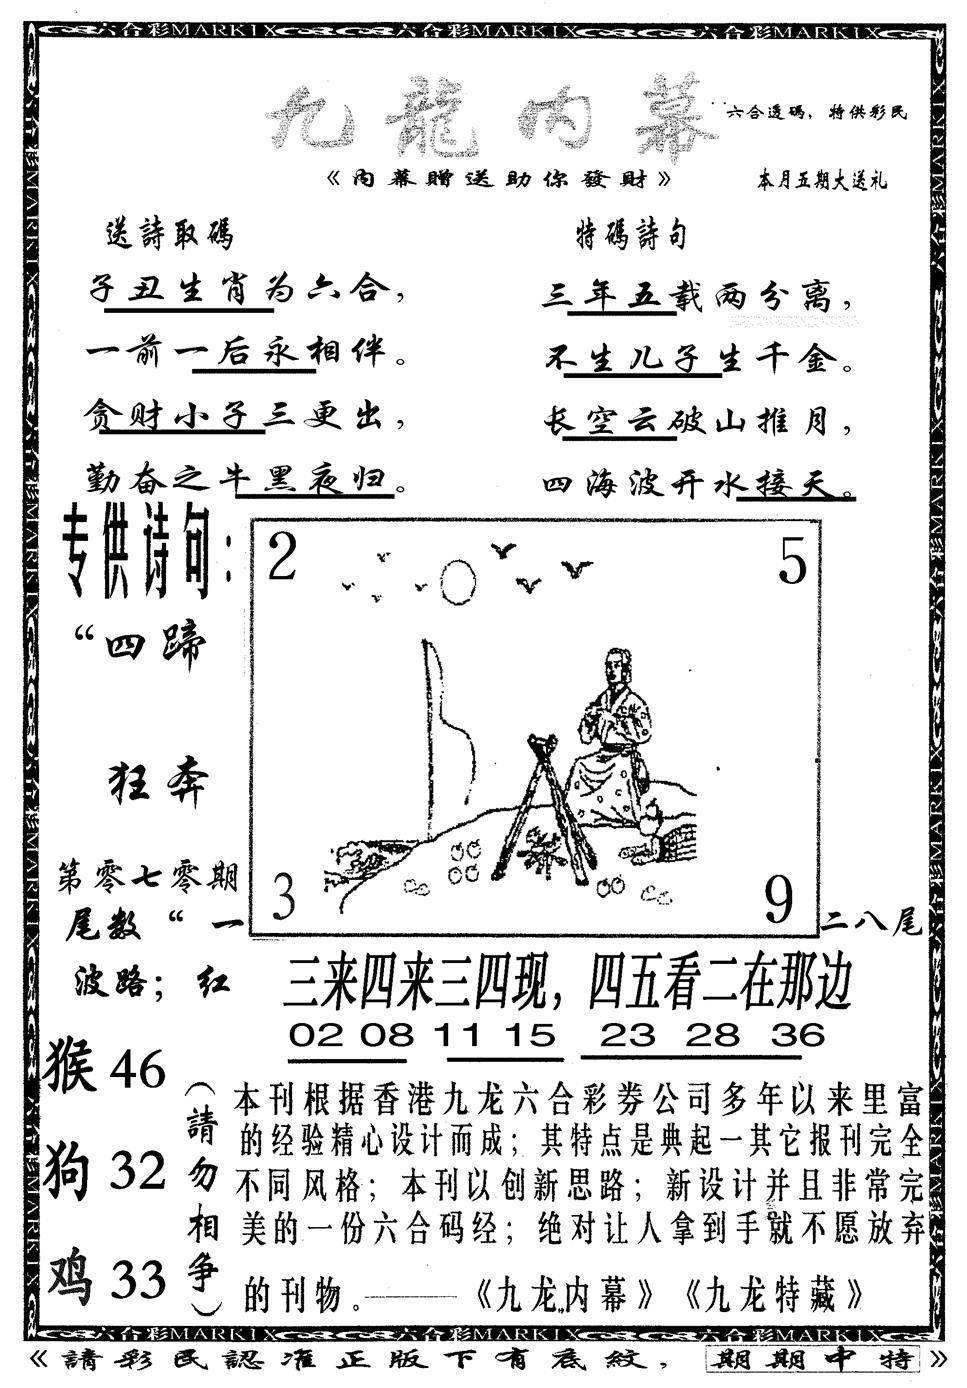 六合彩MARKIX 六合彩MARKIX 六合彩MARKIX
九龍内幕
六合透碼，特供彩民
《内幕贈送助你發財》
本月五期大送礼
送詩取碼
子丑生肖为六合，
一前一后永相伴。
贪财小子三更出，
勤奋之牛黑夜归。
特碼詩句
三年五载两分离，
不生儿子生千金。
长空云破山推月，
四海波开水接天。
专供诗句：
“四蹄
狂奔
第零七零期
尾数“一
二八尾
波路；红
2
5
3
9
三来四来三四现，四五看二在那边
02 08 11 15 23 28 36
猴 46
狗 32
鸡 33
（請勿相争）
本刊根据香港九龙六合彩券公司多年以来里富
的经验精心设计而成；其特点是典起一其它报刊完全
不同风格；本刊以创新思路；新设计并且非常完
美的一份六合码经；绝对让人拿到手就不愿放弃
的刊物。——《九龙内幕》《九龙特藏》
六合彩MARKIX 六合彩MARKIX 六合彩MARKIX
《請彩民認准正版下有底紋，期期中特》